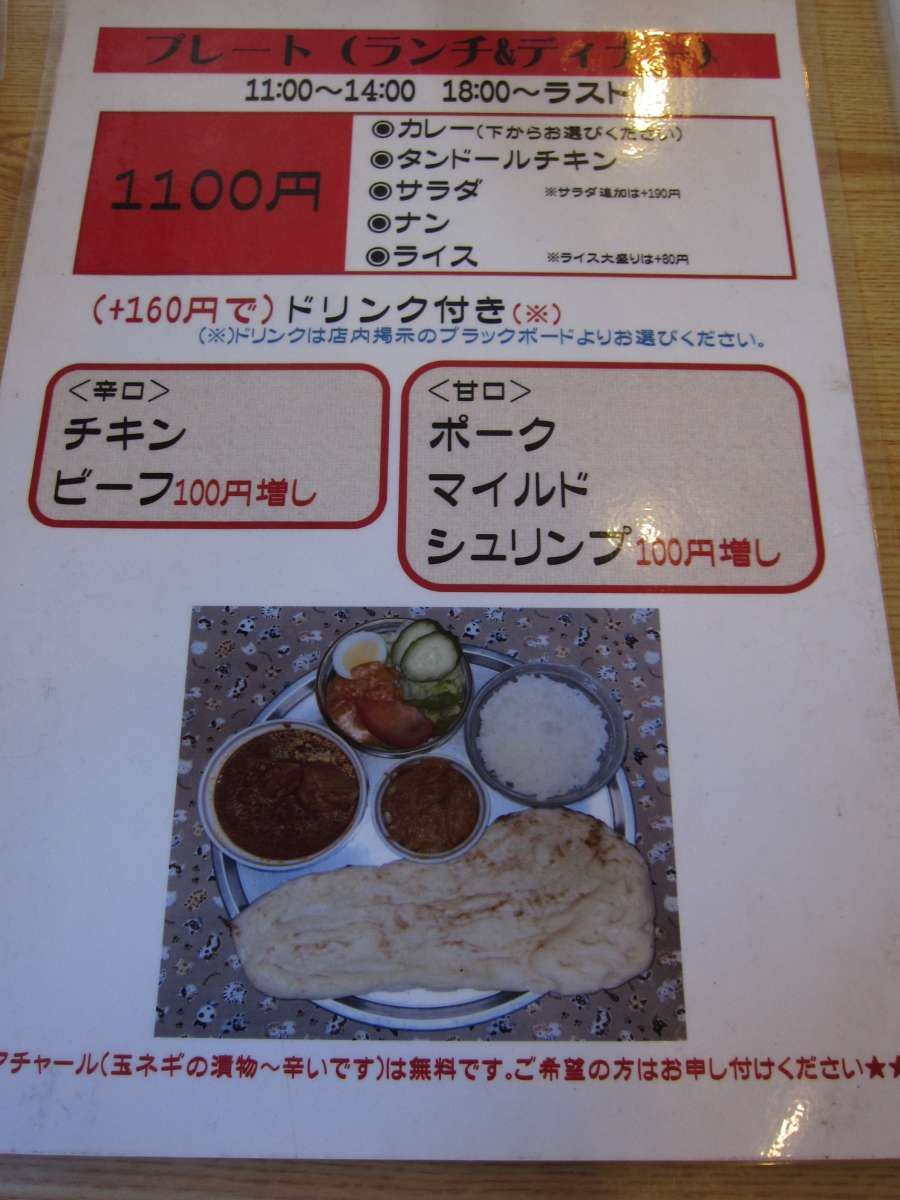 プレート（ランチ&ディナー）
11:00～14:00　18:00～ラスト
1100円
◉カレー(下からお選びください)
◉タンドールチキン
◉サラダ　※サラダ追加は+190円
◉ナン
◉ライス　※ライス大盛りは+80円
(+160円で)ドリンク付き(※)
(※)ドリンクは店内掲示のブラックボードよりお選びください。
＜辛口＞
チキン
ビーフ100円増し
＜甘口＞
ポーク
マイルド
シュリンプ100円増し
アチャール(玉ネギの漬物～辛いです)は無料です。ご希望の方はお申し付けください★★